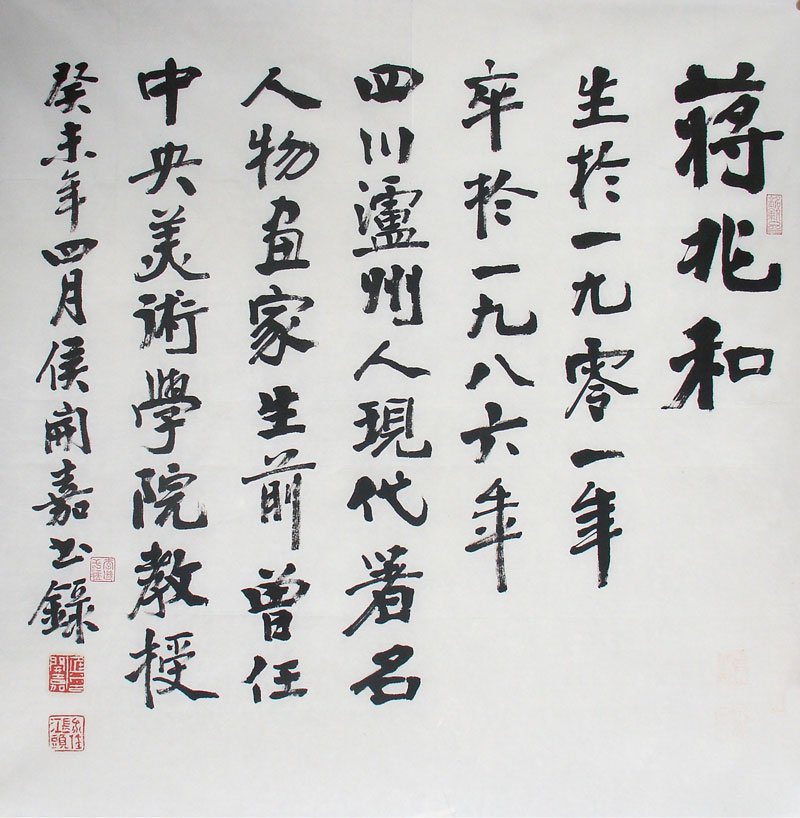 蒋兆和
生於一九零一年
卒於一九八六年
四川瀘州人現代著名
人物画家生前曾任
中央美術學院教授
癸未年四月侯開嘉书錄
開嘉
家住長江頭